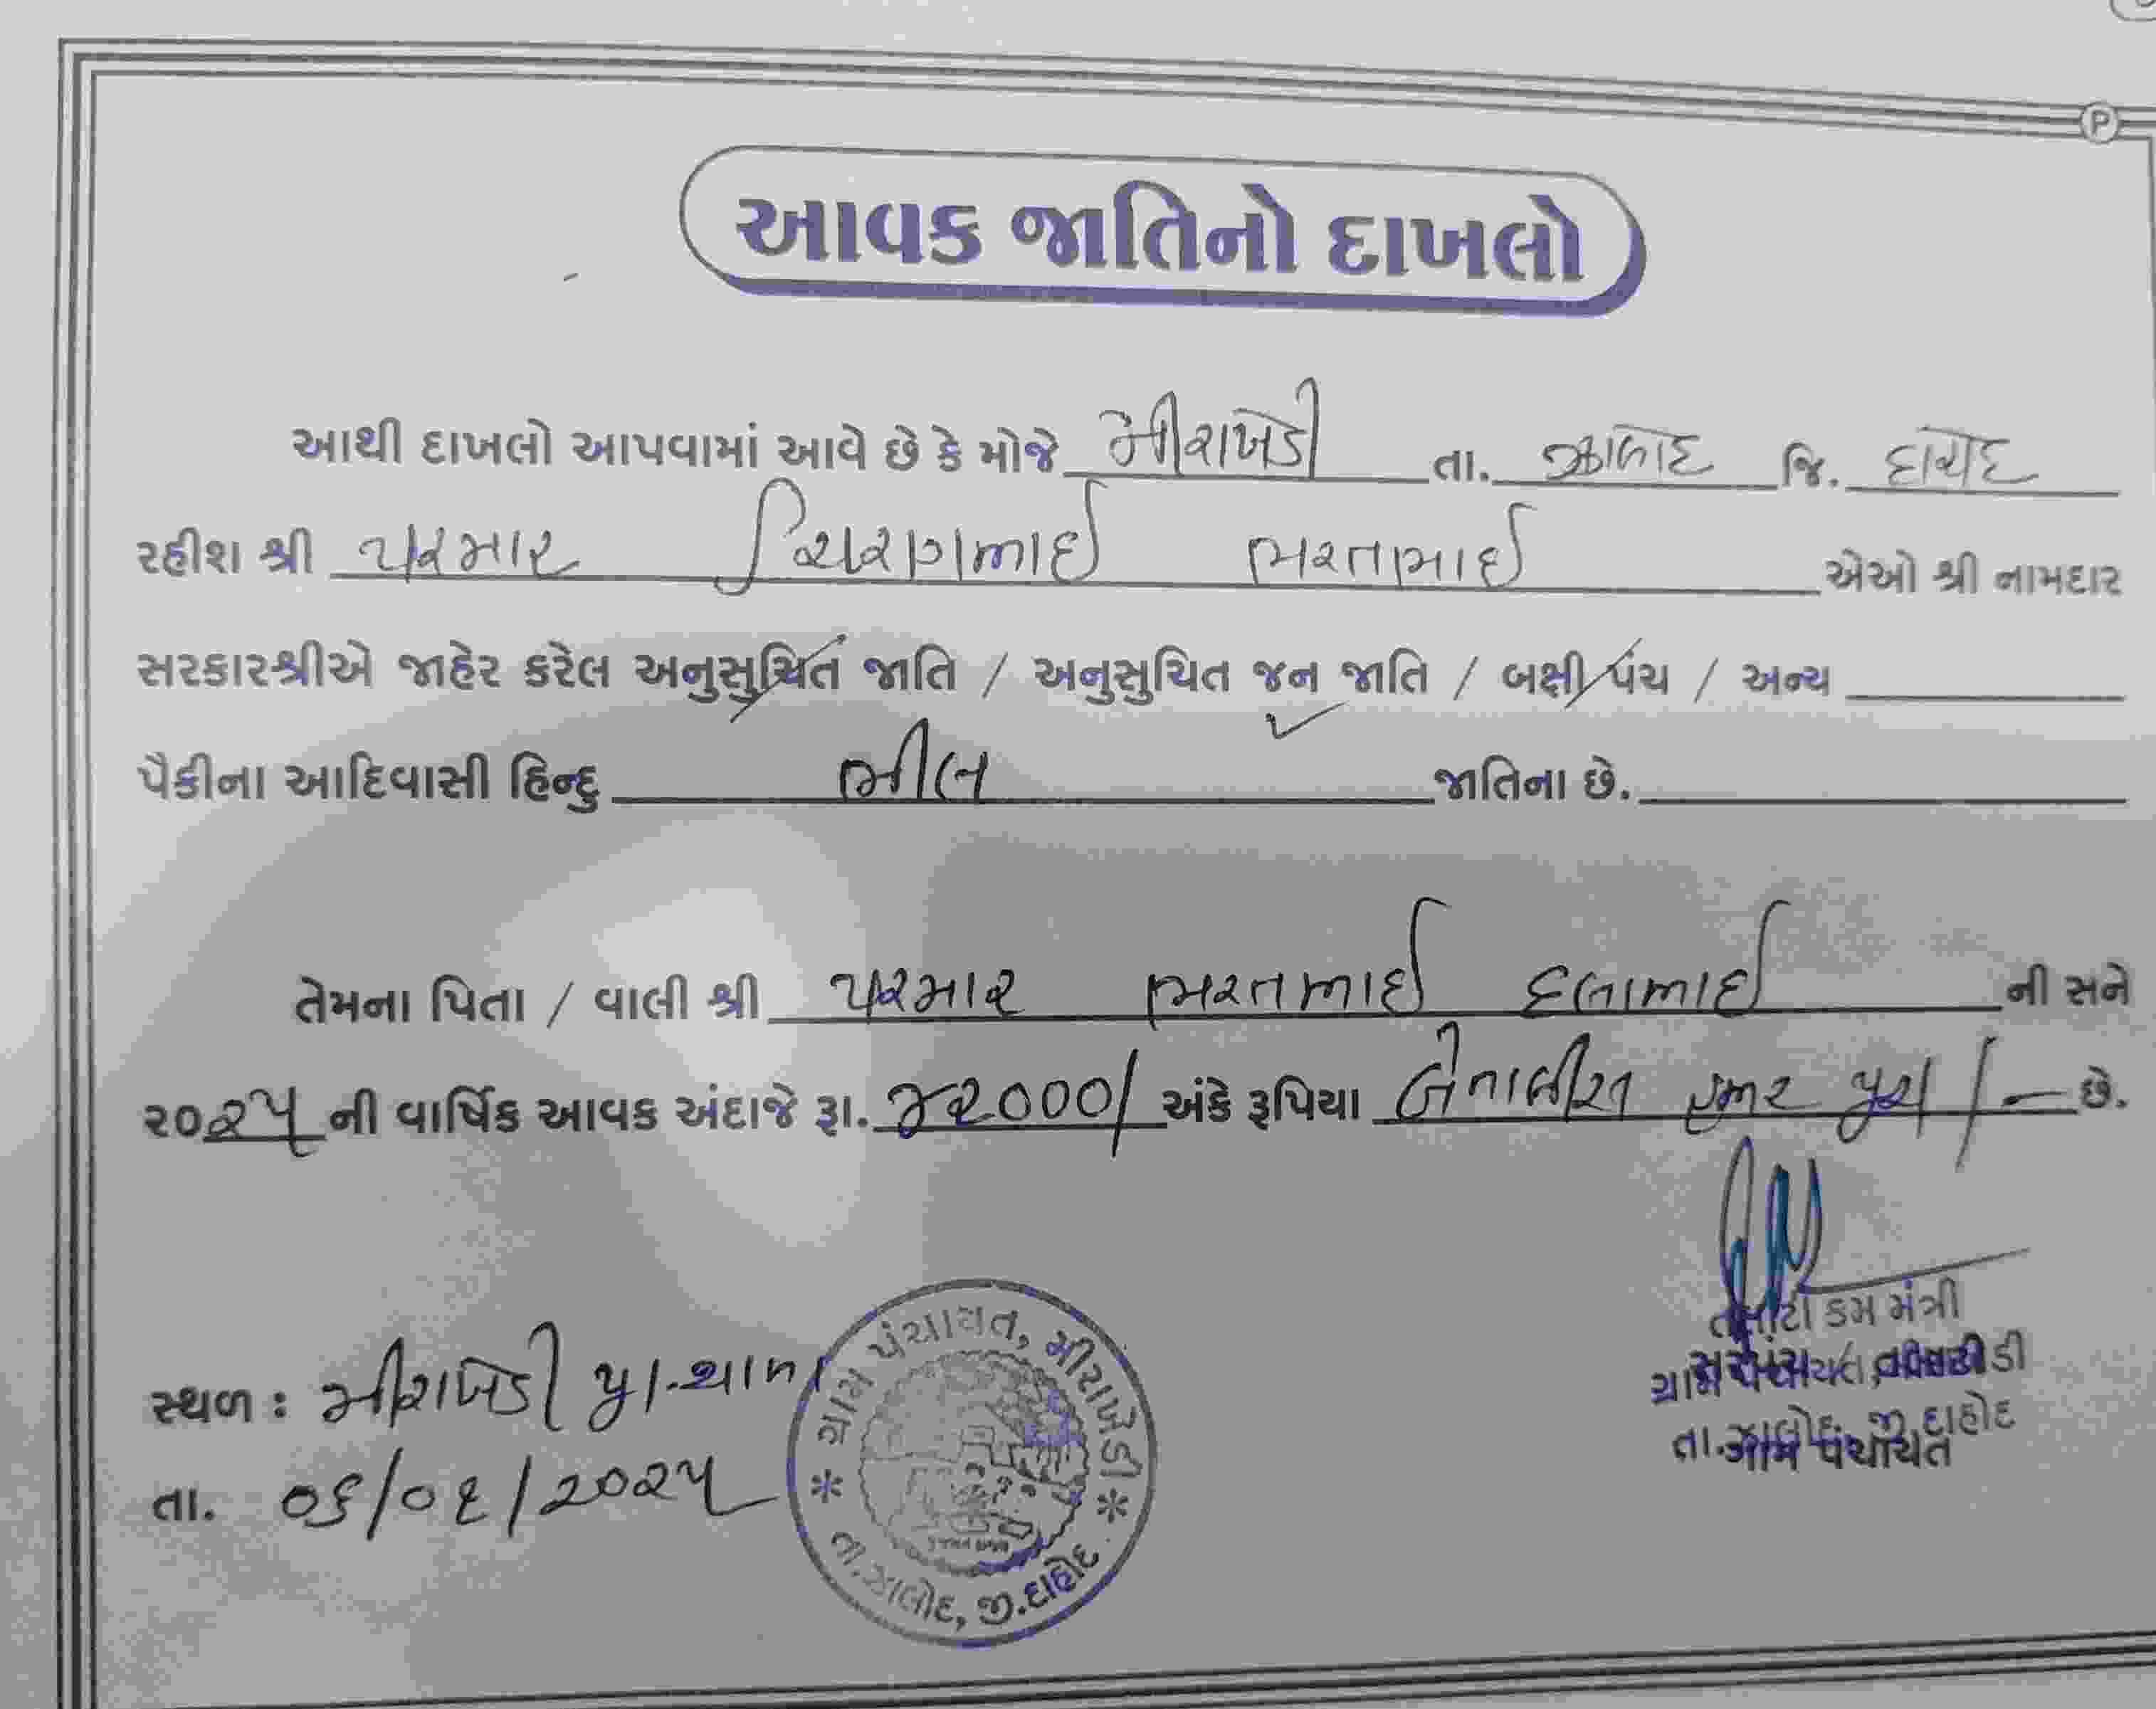 આવક જાતિનો દાખલો
આથી દાખલો આપવામાં આવે છે કે મોજે મીરાખેડી તા. ઝાલોદ જિ. દાહોદ
રહીશ શ્રી પરમાર કિરણભાઈ ભરતભાઈ એઓ શ્રી નામદાર
સરકારશ્રીએ જાહેર કરેલ અનુસુચિત જાતિ / અનુસુચિત જન જાતિ / બક્ષી પંચ / અન્ય
પૈકીના આદિવાસી હિન્દુ ભીલ જાતિના છે.
તેમના પિતા / વાલી શ્રી પરમાર ભરતભાઈ દલાભાઈ ની સને
૨૦૨૫ ની વાર્ષિક આવક અંદાજે રૂા. ૪૨૦૦૦/ અંકે રૂપિયા બેતાલીસ હજાર પુરા /- છે.
તલાટી કમ મંત્રી
સરપંચ / તલાટી
ગ્રામ પંચાયત, મીરાખેડી
તા.ઝાલોદ, જી.દાહોદ
ગ્રામ પંચાયત
સ્થળ : મીરાખેડી પ્રા.શાળા
તા. ૦૬/૦૬/૨૦૨૫
ગ્રામ પંચાયત, મીરાખેડી
* તા.ઝાલોદ, જી.દાહોદ *
P